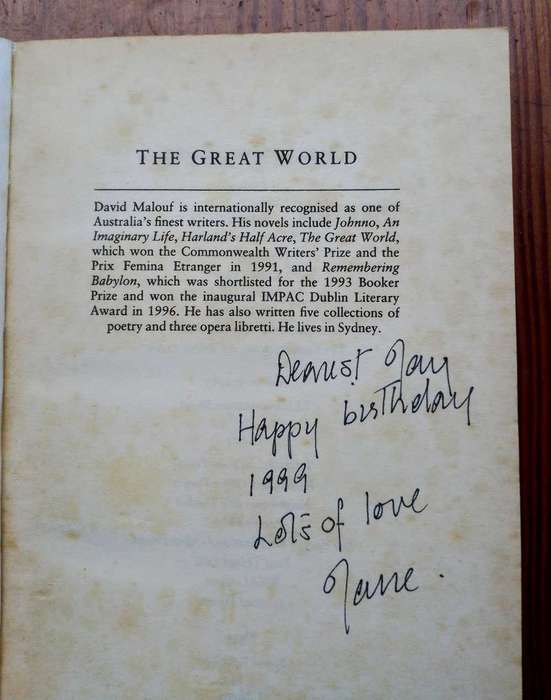 THE GREAT WORLD
David Malouf is internationally recognised as one of
Australia's finest writers. His novels include Johnno, An
Imaginary Life, Harland's Half Acre, The Great World,
which won the Commonwealth Writers' Prize and the
Prix Femina Etranger in 1991, and Remembering
Babylon, which was shortlisted for the 1993 Booker
Prize and won the inaugural IMPAC Dublin Literary
Award in 1996. He has also written five collections of
poetry and three opera libretti. He lives in Sydney.
Dearest Jay
Happy birthday
1999
Lots of love
Jane.